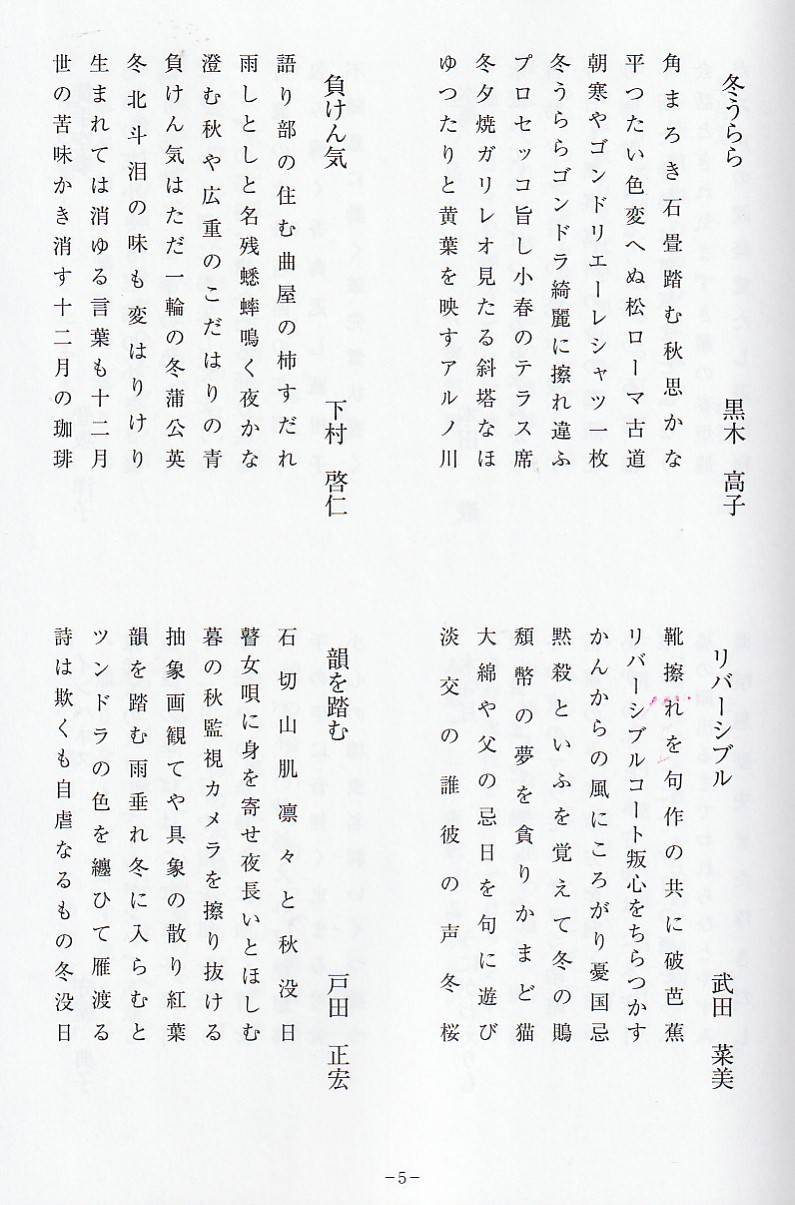 冬うらら
黒木　高子
角まろき石畳踏む秋思かな
平つたい色変へぬ松ローマ古道
朝寒やゴンドリエーレシャツ一枚
冬うららゴンドラ綺麗に擦れ違ふ
プロセッコ旨し小春のテラス席
冬夕焼ガリレオ見たる斜塔なほ
ゆつたりと黄葉を映すアルノ川
負けん気
下村　啓仁
語り部の住む曲屋の柿すだれ
雨しとしと名残蟋蟀鳴く夜かな
澄む秋や広重のこだはりの青
負けん気はただ一輪の冬蒲公英
冬北斗泪の味も変はりけり
生まれては消ゆる言葉も十二月
世の苦味かき消す十二月の珈琲
リバーシブル
武田　菜美
靴擦れを句作の共に破芭蕉
リバーシブルコート叛心をちらつかす
かんからの風にころがり憂国忌
黙殺といふを覚えて冬の鵙
頽幣の夢を貪りかまど猫
大綿や父の忌日を句に遊び
淡交の誰彼の声冬桜
韻を踏む
戸田　正宏
石切山肌凛々と秋没日
瞽女唄に身を寄せ夜長いとほしむ
暮の秋監視カメラを擦り抜ける
抽象画観てや具象の散り紅葉
韻を踏む雨垂れ冬に入らむと
ツンドラの色を纏ひて雁渡る
詩は欺くも自虐なるもの冬没日
－5－